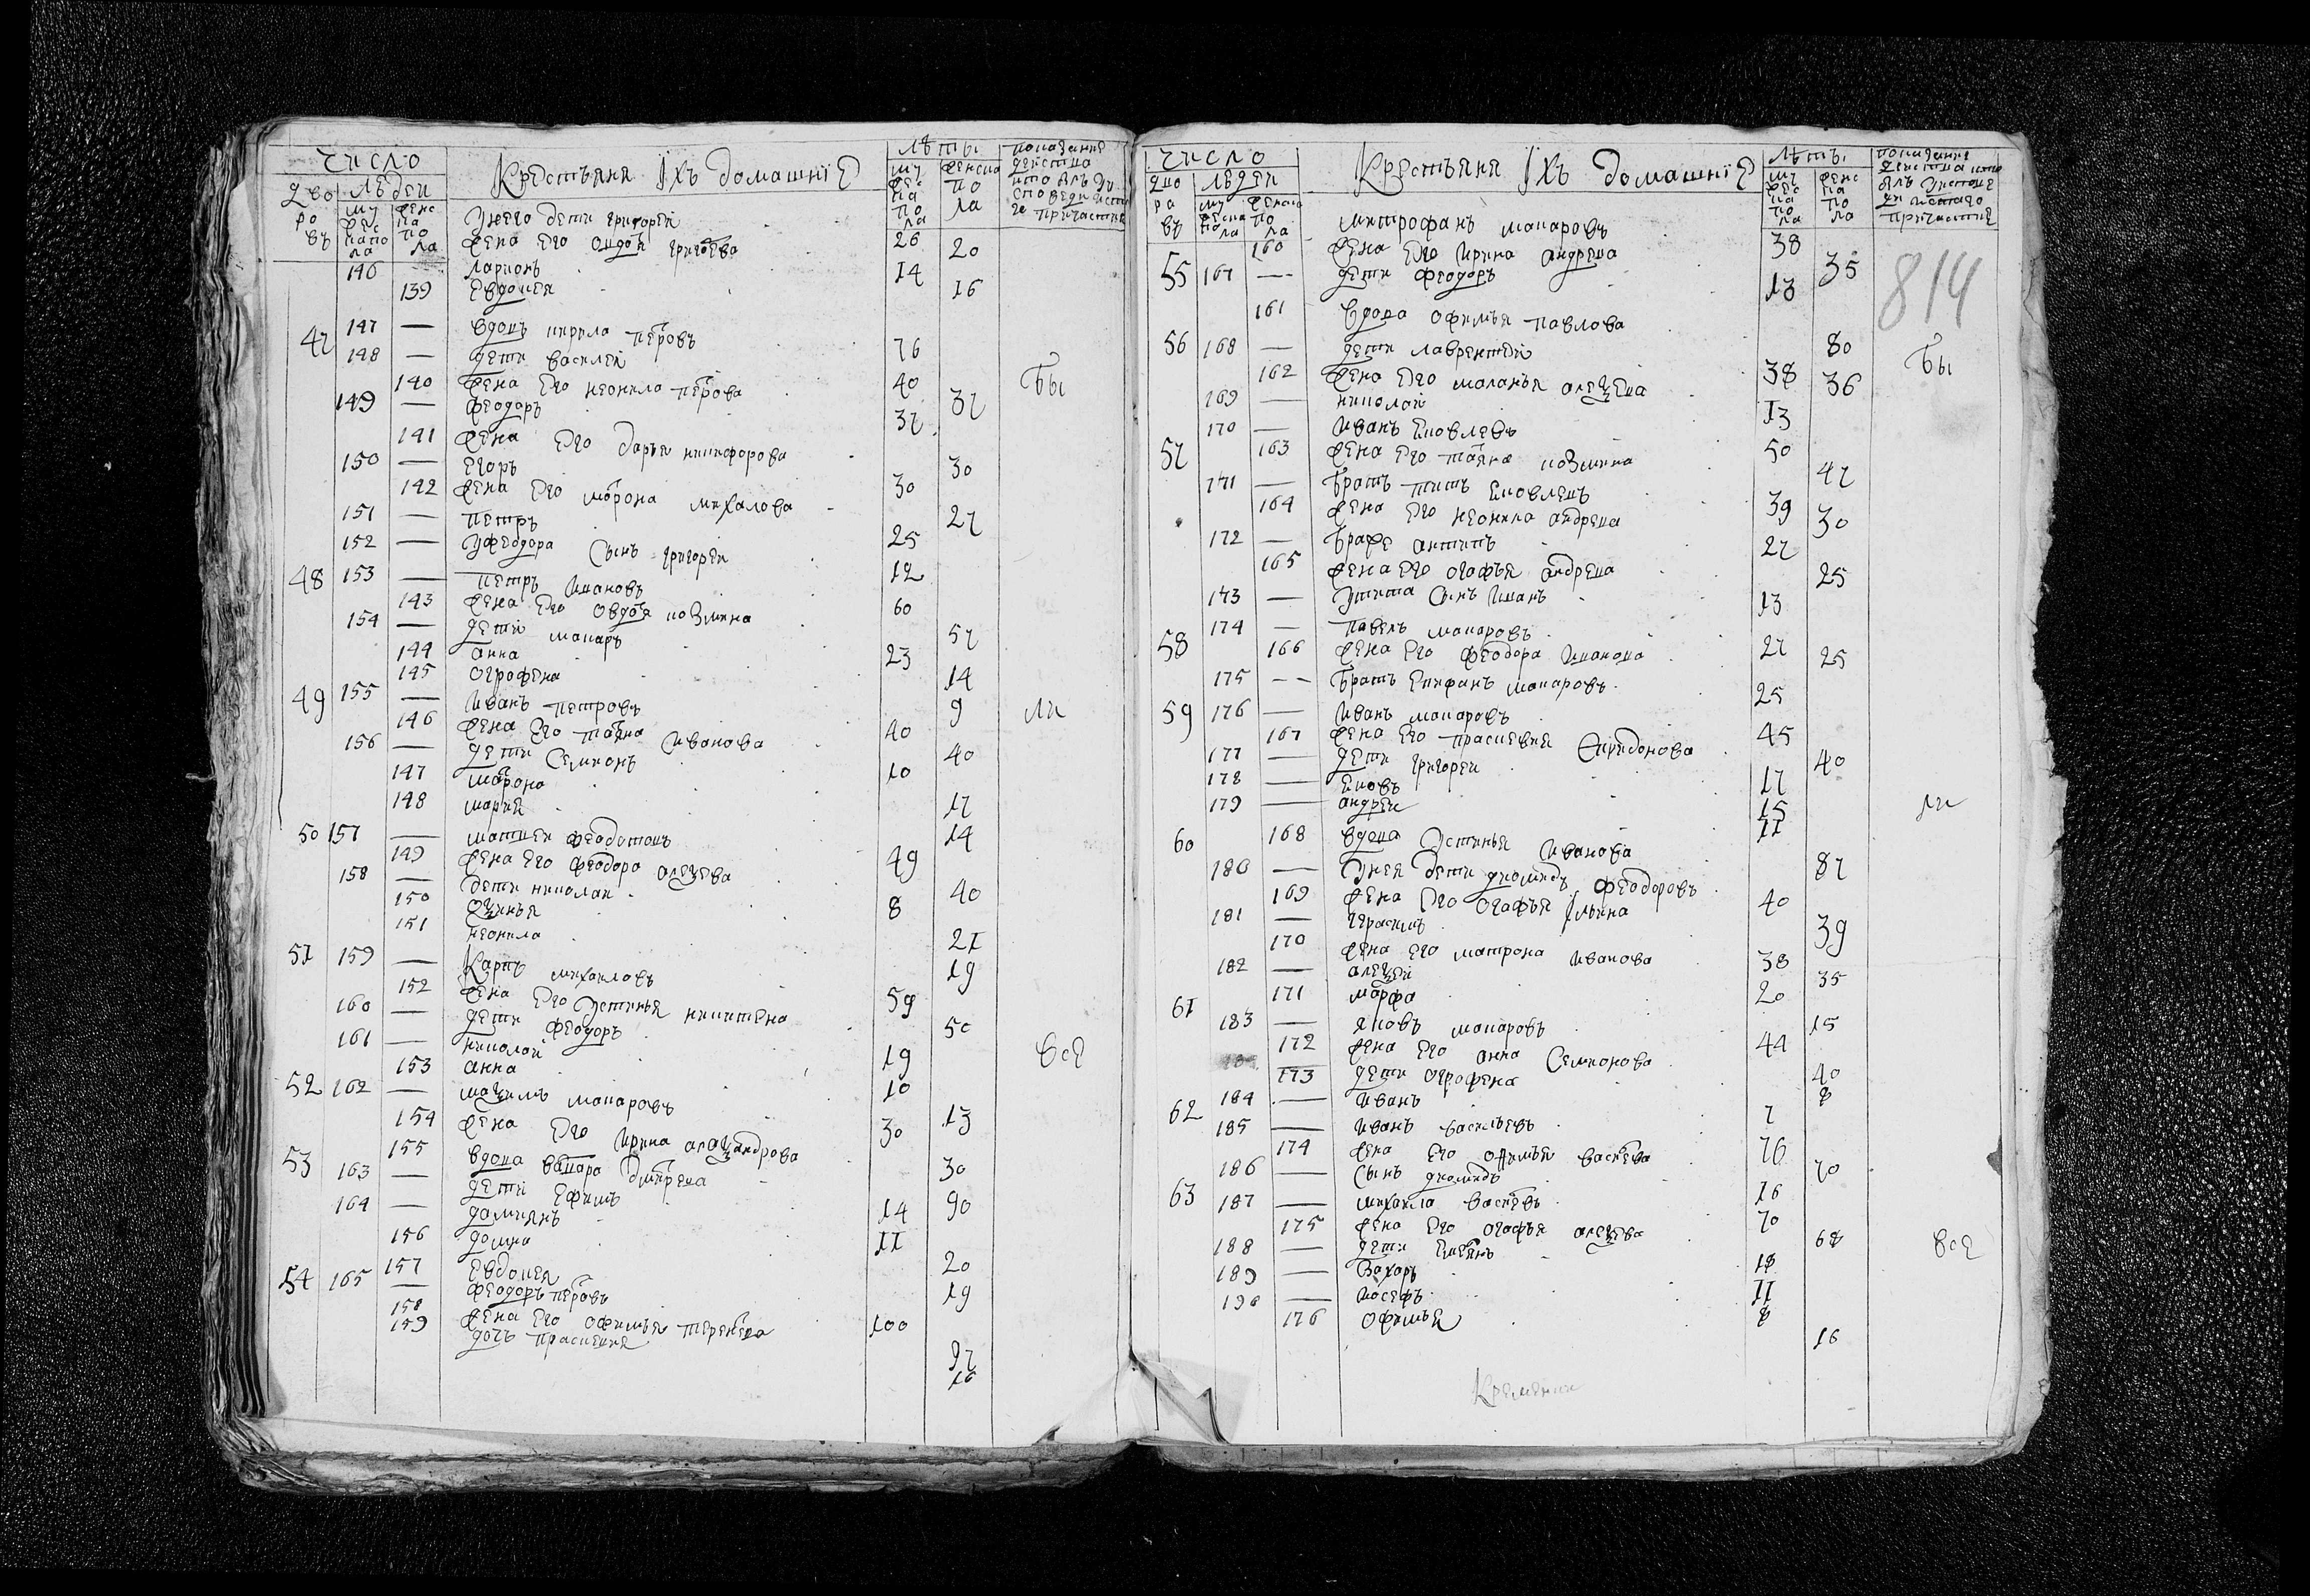 число
Крестьяне Ихъ домашнiе
лѣты
показание действа кто былъ у исповеди и свт: причастия
дворовъ
людей
мужеска пола
женска пола
мужеска пола
женска пола
у него дети григорей 26
146 — жена его авдотя григорева 20
— ларионъ 14
139 Евдокея 16
47 147 — вдовъ кирила петровъ 76
148 — дети василей 40
140 жена его неонила петрова 37
149 — феодоръ 37
141 жена его дарья никифорова 30
150 — егоръ 30
142 жена его матрона михаилова 27
151 — петръ 25
152 — у феодора сынъ григорей 12
48 153 — петръ ивановъ 60
143 жена его овдотя козмина 57
154 — дети макаръ 23
144 анна 14
145 огрофена 9
49 155 — иванъ петровъ 40
146 жена его татяна иванова 40
156 — дети семионъ 10
147 матрона 17
148 мария 14
50 157 — матвей феодотовъ 49
149 жена его феодора алеѯева 40
158 — дети николаи 8
150 оѯинья 21
151 неонила 19
51 159 — Карпъ михаиловъ 59
152 жена его устинья никитена 50
160 — дети феодоръ 19
161 — николай 10
153 анна 13
52 162 — маѯимъ макаровъ 30
154 жена его ирина алеѯандрова 30
53 155 вдова варвара дмитрева 90
163 — дети ефимъ 14
164 — дамиянъ 11
156 домна 20
157 Евдокея 19
54 165 — феодоръ петровъ 100
158 жена его офимья терентева 97
159 дочь прасковия 16
Бы
ли
все
число
Крестьяне Ихъ домашнiе
лѣты
показание действа кто былъ у исповеди и святаго причастия
дворовъ
людей
мужеска пола
женска пола
мужеска пола
женска пола
814
митрофанъ макаровъ 38
160 жена его ирина андрева 35
55 167 — дети феодоръ 13
161 вдова офимья павлова 80
56 168 — дети лаврентей 38
162 жена его маланья алеѯева 36
169 — николай 13
170 — иванъ яковлевъ 50
57 163 жена его татяна козмина 47
171 — братъ титъ яковлевъ 39
164 жена его неонила андрева 30
172 — братже антипъ 27
165 жена его огафья андрева 25
173 — у тита сынъ иванъ 13
174 — павелъ макаровъ 27
58 166 жена его феодора иванова 25
175 — братъ епифанъ макаровъ 25
59 176 — иванъ макаровъ 45
167 жена его прасковия спиридонова 40
177 — дети григореи 17
178 — яковъ 15
179 — андреи 11
60 168 вдова устинья иванова 87
180 — у нея дети диомидъ феодоровъ 40
169 жена его огафья ильина 39
181 — герасимъ 38
170 жена его матрона иванова 35
182 — алеѯей 20
171 марфа 15
61 183 — яковъ макаровъ 44
172 жена его анна семионова 40
173 дети огрофена 8
184 — иванъ 7
62 185 — иванъ василъевъ 76
174 жена его офимья василева 70
186 — сынъ диомидъ 16
63 187 — михаила василевъ 70
175 жена его огафья алеѯева 68
188 — дети 18
189 — захаръ 11
190 — иосефъ 8
176 офимья 16
Бы
ли
все
Кремении